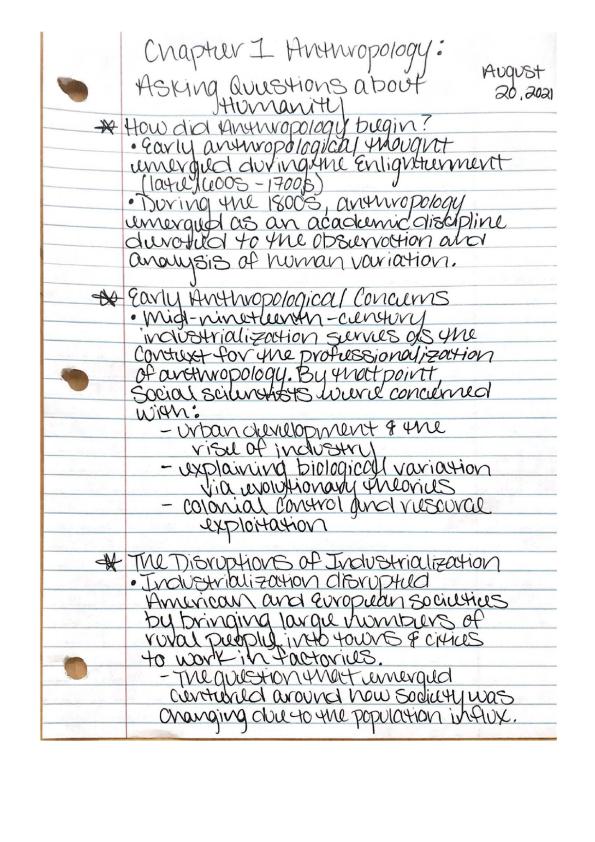 Chapter 1 Anthropology:
Asking Questions about
Humanity
August
20, 2021
How did Anthropology begin?
• Early anthropological thought
emerged during the Enlightenment
(late 1600s - 1700s)
• During the 1800s, anthropology
emerged as an academic discipline
devoted to the observation and
analysis of human variation.
Early Anthropological Concerns
• Mid-nineteenth-century
industrialization serves as the
context for the professionalization
of anthropology. By that point
Social scientists were concerned
with:
- urban development & the
rise of industry
- explaining biological variation
via evolutionary theories
- colonial control and resource
exploitation
The Disruptions of Industrialization
• Industrialization disrupted
American and European societies
by bringing large numbers of
rural people into towns & cities
to work in factories.
- The question that emerged
centered around how society was
changing due to the population influx.